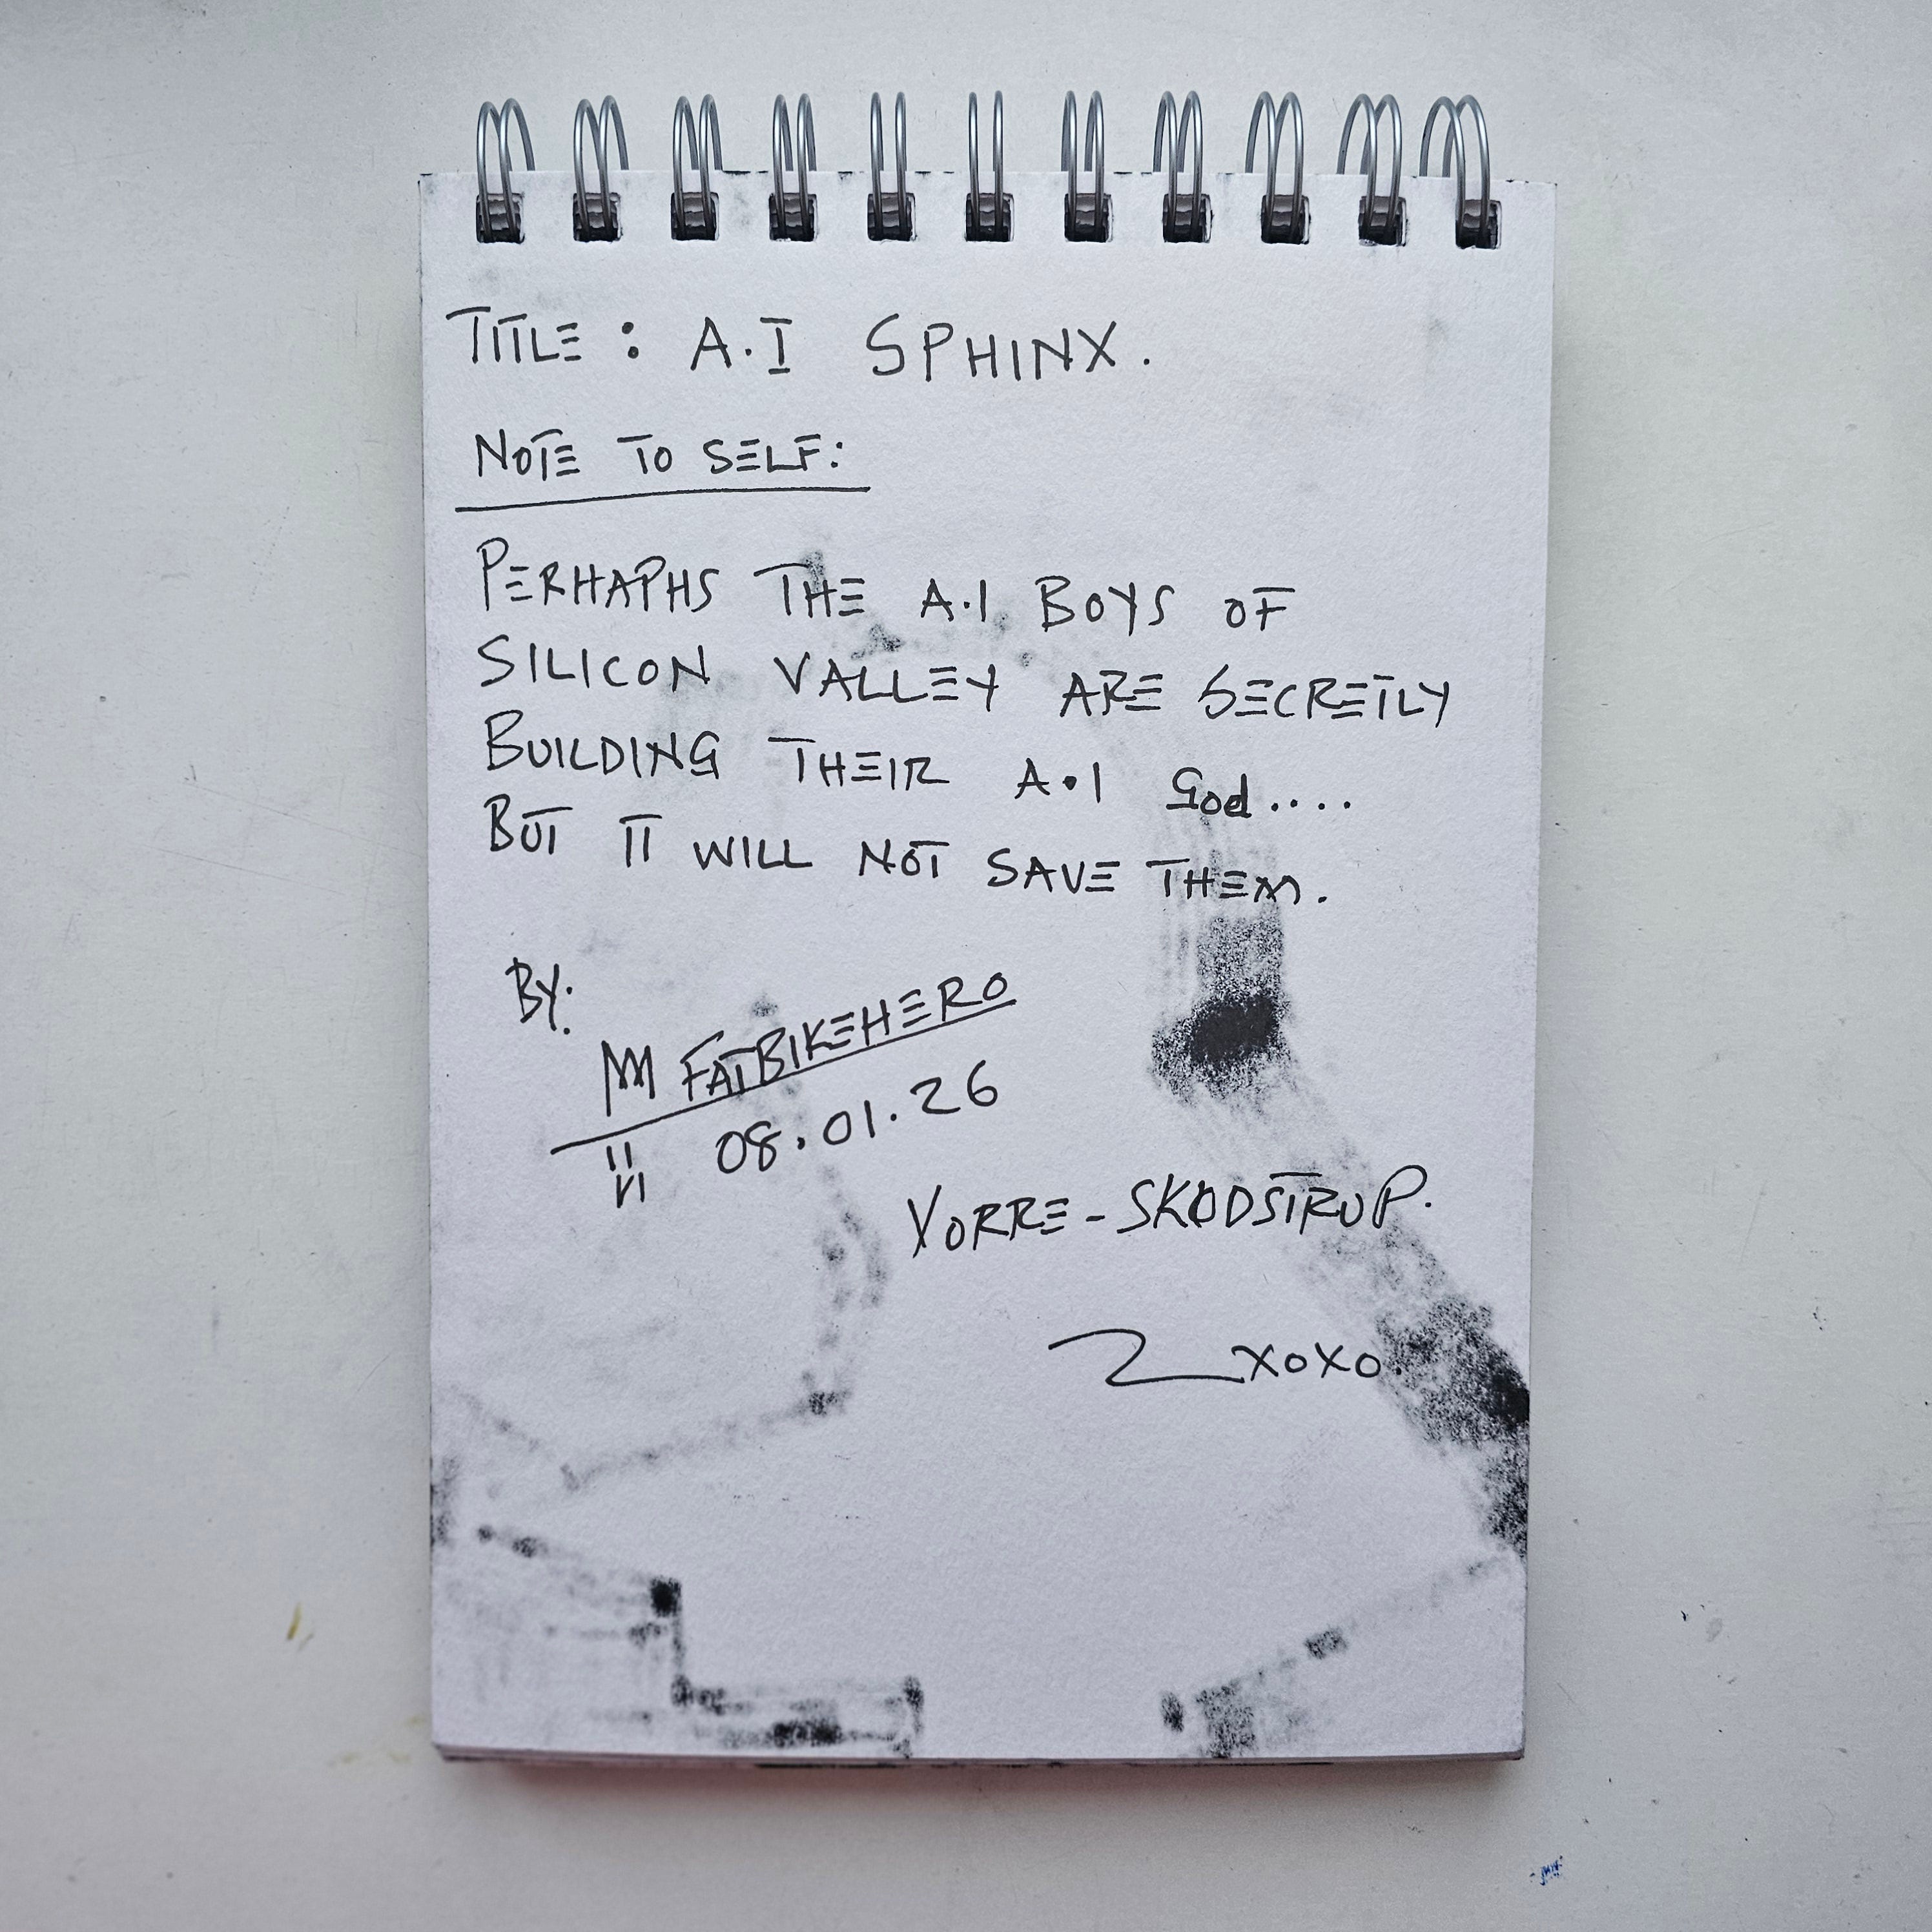 TITLE : A.I SPHINX.
NOTE TO SELF:
PERHAPHS THE A.I BOYS OF
SILICON VALLEY ARE SECRETLY
BUILDING THEIR A.I God....
BUT IT WILL NOT SAVE THEM.
BY:
FATBIKEHERO
08.01.26
VORRE - SKØDSTRUP.
XOXO.